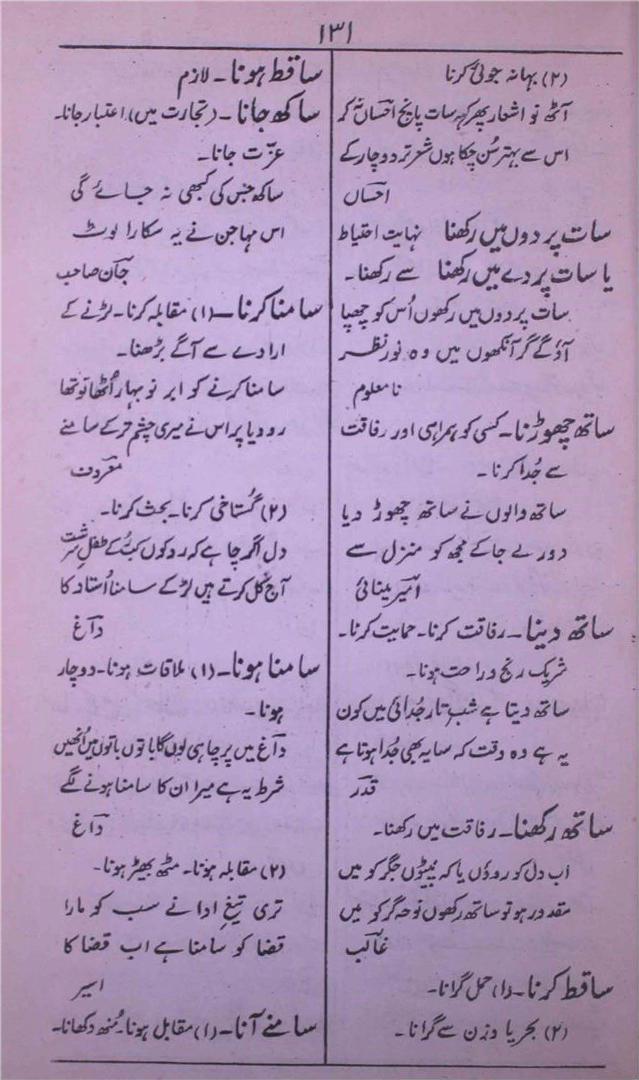 ۱۳۱
(۲) بہانہ جوئی کرنا
آٹھ نو اشعار پھر کہہ سات پانچ احساں کر
اس سے بہتر سُن چکا ہوں شعر تر دو چار کے
احساں
سات پردوں میں رکھنا نہایت احتیاط
یا سات پردے میں رکھنا سے رکھنا۔
سات پردوں میں رکھوں اُس کو چھپا
آؤ گے گر آنکھوں میں وہ نور نظر
نامعلوم
ساتھ چھوڑنا۔ کسی کو ہمراہی اور رفاقت
سے جُدا کرنا۔
ساتھ والوں نے ساتھ چھوڑ دیا
دور لے جا کے مجھ کو منزل سے
امیر مینائی
ساتھ دینا۔ رفاقت کرنا۔ حمایت کرنا۔
شریک رنج و راحت ہونا۔
ساتھ دیتا ہے شب تار جُدائی میں کون
یہ ہے وہ وقت کہ سایہ بھی جُدا ہوتا ہے
قدر
ساتھ رکھنا۔ رفاقت میں رکھنا۔
اب دل کو روؤں یا کہ پیٹوں جگر کو میں
مقدور ہو تو ساتھ رکھوں نوحہ گر کو میں
غالب
ساقط کرنا۔ (۱) حمل گرانا۔
(۲) بحر یا وزن سے گرانا۔
ساقط ہونا۔ لازم
ساکھ جانا۔ (تجارت میں) اعتبار جانا۔
عزّت جانا۔
ساکھ جس کی کبھی نہ جائے گی
اس مہاجن نے یہ سکارا لوٹ
جان صاحب
سامنا کرنا۔ (۱) مقابلہ کرنا۔ لڑنے کے
ارادے سے آگے بڑھنا۔
سامنا کرنے کو ابر نو بہار اُٹھا تو تھا
رو دیا پر اس نے میری چشم تر کے سامنے
معروف
(۲) گستاخی کرنا۔ بحث کرنا۔
دل اگر چاہے کہ روکوں کب رُکے طفل سرشت
آج کل کرتے ہیں لڑکے سامنا اُستاد کا
داغ
سامنا ہونا۔ (۱) ملاقات ہونا۔ دوچار
ہونا۔
داغ میں پرچا ہی لوں گا باتوں باتوں میں اُنھیں
شرط یہ ہے میرا ان کا سامنا ہونے لگے
داغ
(۲) مقابلہ ہونا۔ مٹھ بھیڑ ہونا۔
تری تیغ ادا نے سب کو مارا
قضا کو سامنا ہے اب قضا کا
اسیر
سامنے آنا۔ (۱) مقابل ہونا۔ مُنھ دکھانا۔